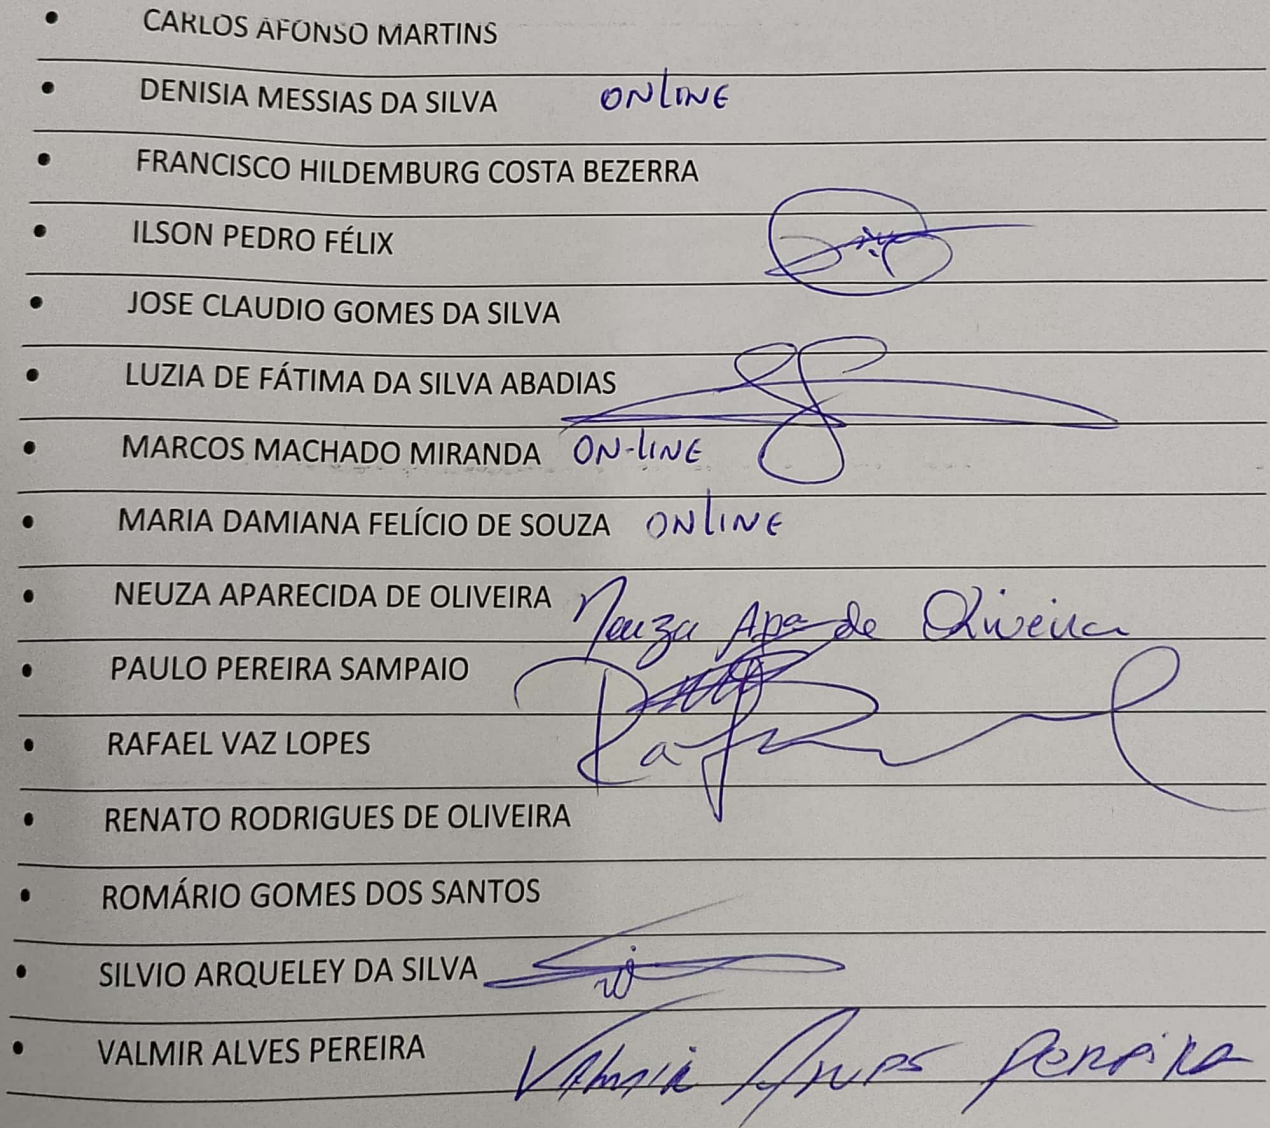 CARLOS AFONSO MARTINS
DENISIA MESSIAS DA SILVA ONLINE
FRANCISCO HILDEMBURG COSTA BEZERRA
ILSON PEDRO FÉLIX
JOSE CLAUDIO GOMES DA SILVA
LUZIA DE FÁTIMA DA SILVA ABADIAS
MARCOS MACHADO MIRANDA ON-LINE
MARIA DAMIANA FELÍCIO DE SOUZA ONLINE
NEUZA APARECIDA DE OLIVEIRA Neuza Apª de Oliveira
PAULO PEREIRA SAMPAIO
RAFAEL VAZ LOPES
RENATO RODRIGUES DE OLIVEIRA
ROMÁRIO GOMES DOS SANTOS
SILVIO ARQUELEY DA SILVA
VALMIR ALVES PEREIRA Valmir Alves Pereira